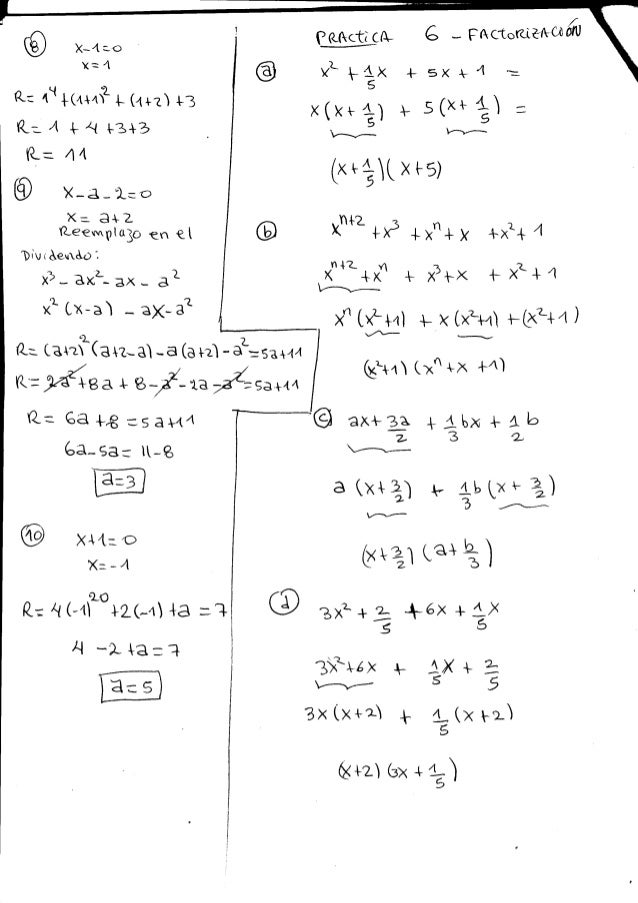 ⑧ x-1=0
x=1
R= 1⁴+(1+1)²+(1+2)+3
R= 1 + 4 +3+3
R= 11
⑨ x-a-2=0
x= a+2
Reemplazo en el
Dividendo:
x³-ax²-ax-a²
x²(x-a) -ax-a²
R= (a+2)²(a+2-a)-a(a+2)-a²=5a+11
R= 2a²+8a+8-a²-2a-a²=5a+11
R= 6a+8=5a+11
6a-5a= 11-8
a=3
⑩ x+1=0
x=-1
R= 4(-1)²⁰+2(-1)+a=7
4-2+a=7
a=5
PRACTICA 6 - FACTORIZACIÓN
ⓐ x² + 1/5x + 5x + 1 =
x(x+1/5) + 5(x+1/5) =
(x+1/5)(x+5)
ⓑ xⁿ⁺²+x³+xⁿ+x+x²+1
xⁿ⁺²+xⁿ + x³+x + x²+1
xⁿ(x²+1) + x(x²+1)+(x²+1)
(x²+1)(xⁿ+x+1)
ⓒ ax+3a/2 + 1/3bx + 1/2b
a(x+3/2) + 1/3b(x+3/2)
(x+3/2)(a+b/3)
ⓓ 3x²+2/5+6x+1/5x
3x²+6x + 1/5x + 2/5
3x(x+2) + 1/5(x+2)
(x+2)(3x+1/5)